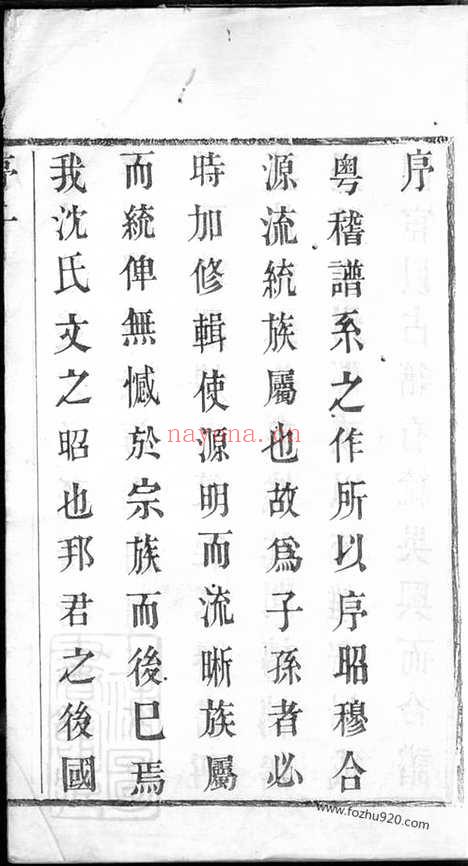 序
粤稽譜系之作所以序昭穆合
源流統族屬也故爲子孫者必
時加修輯使源明而流晰族屬
而統俾無憾於宗族而後已焉
我沈氏文之昭也邦君之後國
序一
nayona.cn
www.fozhu920.com